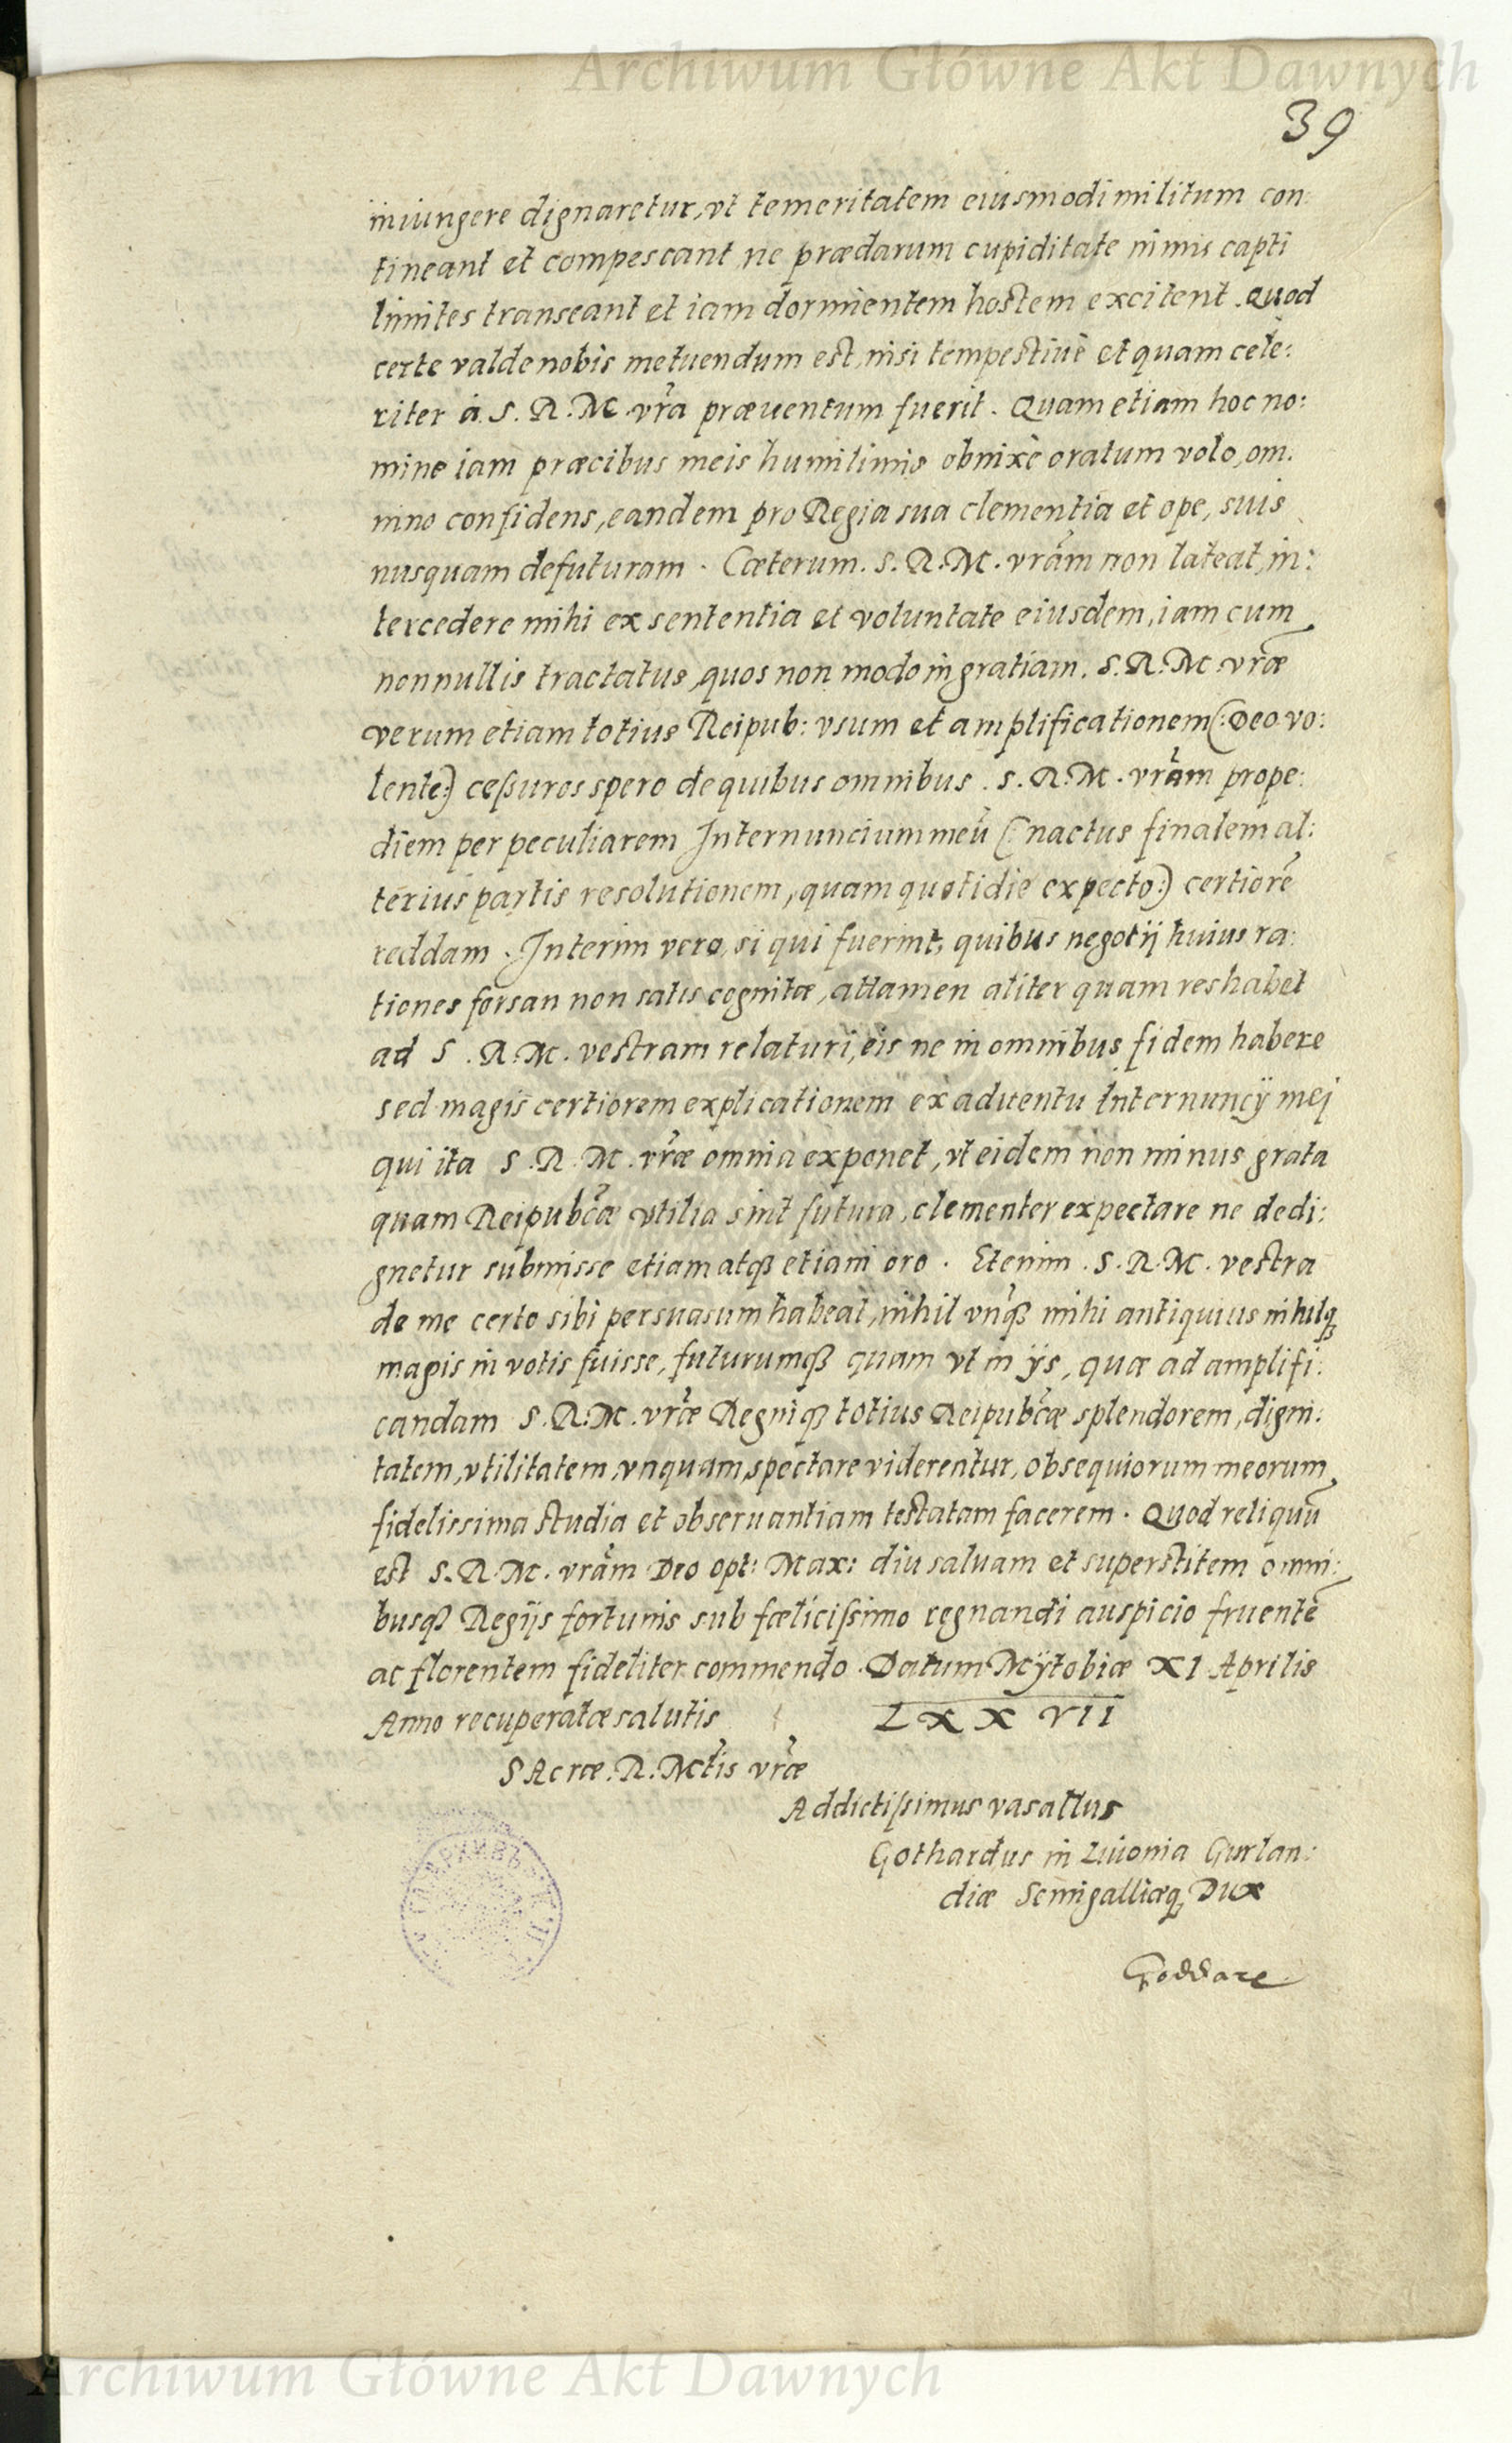 Archiwum Główne Akt Dawnych
39
iniungere dignaretur, vt temeritatem eiusmodi militum con:
tineant et compescant ne prædarum cupiditate nimis capti
limites transeant et iam dormientem hostem excitent. Quod
certe valde nobis metuendum est, nisi tempestiuè et quam cele:
riter à S. R. M. vr̃a præuentum fuerit. Quam etiam hoc no:
mine iam præcibus meis humilimis obnixè oratum volo, om:
nino confidens, eandem pro Regia sua clementia et ope, suis
nusquam defuturam. Cæterum. S. R. M. vr̃am non lateat, in:
tercedere mihi ex sententia et voluntate eiusdem, iam cum
nonnullis tractatus, quos non modo in gratiam. S. R. M. vr̃æ
verum etiam totius Reipub: vsum et amplificationem (: Deo vo:
lente:) ceſsuros spero de quibus omnibus. S. R. M. vr̃am prope:
diem per peculiarem Internuncium meũ (: nactus finalem al:
terius partis resolutionem, quam quotidie expecto:) certiorẽ
reddam. Interim vero, si qui fuerint, quibus negotij huius ra:
tiones forsan non satis cognitæ, attamen aliter quam res habet
ad S. R. M. vestram relaturi, eis ne in omnibus fidem habere
sed magis certiorem explicationem ex aduentu Internuncij mej
qui ita S. R. M. vr̃æ omnia exponet, vt eidem non minus grata
quam Reipubcæ̃ vtilia sint futura, clementer expectare ne dedi:
gnetur submisse etiam atq3 etiam oro. Etenim. S. R. M. vestra
de me certo sibi persuasum habeat, nihil vnq̃3 mihi antiquius nihilq3
magis in votis fuisse, futurumq3 quam vt in ijs, quæ ad amplifi:
candam S. R. M. vr̃æ Regniq3 totius Reipubcæ̃ splendorem, digni:
tatem, vtilitatem, vnquam, spectare viderentur, obsequiorum meorum
fidelissima studia et obseruantiam testatam facerem. Quod reliquũ
est S. R. M. vr̃am Deo opt: Max: diu saluam et superstitem omni:
busq3 Regijs fortunis sub fœliciſsimo regnandi auspicio fruentẽ
ac florentem fideliter commendo. Datum Mÿtobiæ XI Aprilis
Anno recuperatæ salutis LXXVII
SAcræ. R. Mctis̃ vr̃æ
Addictiſsimus vasallus
Gothardus in Liuonia Curlan:
diæ Semigalliæq3 Dux
Goddare
Archiwum Główne Akt Dawnych